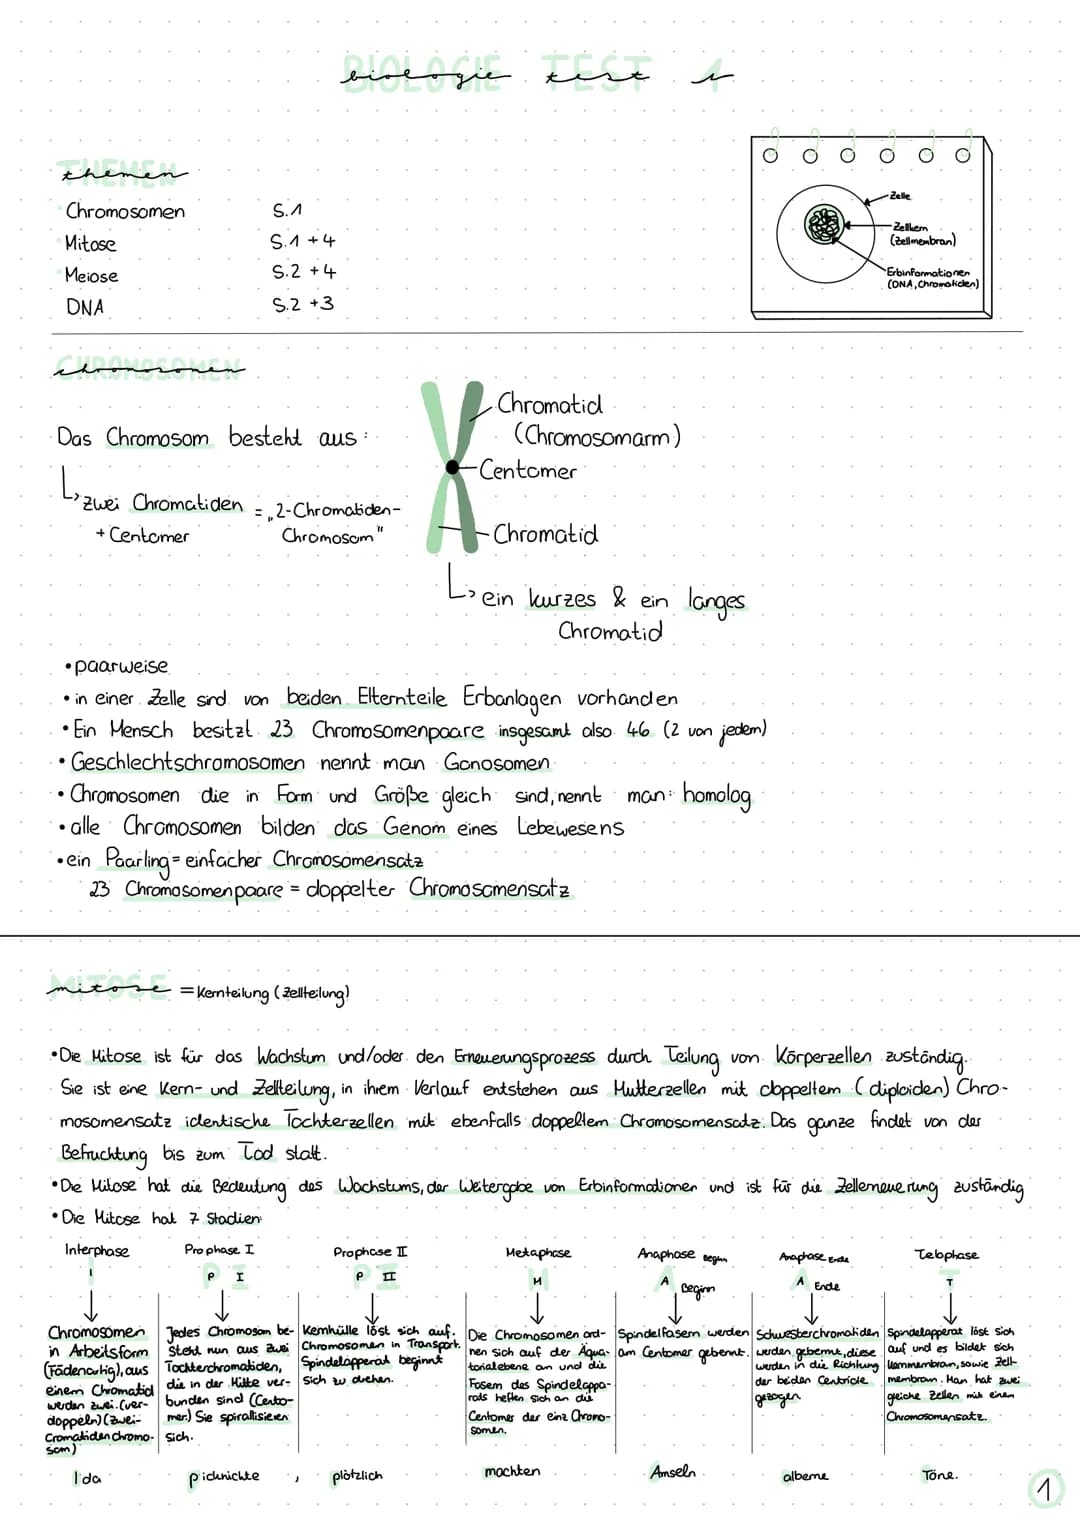 biologie test 1
themen
Chromosomen S.1
Mitose S.1 + 4
Meiose S.2 + 4
DNA S.2 + 3
Zelle
Zellkern
(Zellmembran)
Erbinformationen
(DNA, Chromatiden)
chromosomen
Das Chromosom besteht aus:
↳ zwei Chromatiden = „2-Chromatiden-
+ Centomer Chromosom"
Chromatid
(Chromosomarm)
Centomer
Chromatid
↳ ein kurzes & ein langes
Chromatid
• paarweise
• in einer Zelle sind von beiden Elternteile Erbanlagen vorhanden
• Ein Mensch besitzt 23 Chromosomenpaare insgesamt also 46 (2 von jedem)
• Geschlechtschromosomen nennt man Gonosomen
• Chromosomen die in Form und Größe gleich sind, nennt man: homolog
• alle Chromosomen bilden das Genom eines Lebewesens
• ein Paarling = einfacher Chromosomensatz
23 Chromosomenpaare = doppelter Chromosomensatz
mitose = Kernteilung (Zellteilung)
• Die Mitose ist für das Wachstum und/oder den Erneuerungsprozess durch Teilung von Körperzellen zuständig.
Sie ist eine Kern- und Zellteilung, in ihrem Verlauf entstehen aus Mutterzellen mit doppeltem (diploiden) Chro-
mosomensatz identische Tochterzellen mit ebenfalls doppeltem Chromosomensatz. Das ganze findet von der
Befruchtung bis zum Tod statt.
• Die Mitose hat die Bedeutung des Wachstums, der Weitergabe von Erbinformationen und ist für die Zellerneuerung zuständig
• Die Mitose hat 7 Stadien
Interphase
I
Chromosomen
in Arbeitsform
(Fädenartig), aus
einem Chromatid
werden zwei. (ver-
doppeln) (zwei-
Cromatiden chromo-
som)
Ida
Prophase I
P I
Jedes Chromosom be-
steht nun aus zwei
Tochterchromatiden,
die in der Mitte ver-
bunden sind (Cento-
mer.) Sie spirallisieren
sich.
picknickte,
Prophase II
P II
Kernhülle löst sich auf.
Chromosomen in Transport.
Spindelapparat beginnt
sich zu drehen.
plötzlich
Metaphase
M
Die Chromosomen ord-
nen sich auf der Äqua-
torialebene an und die
Fasern des Spindelappa-
rats heften sich an die
Centomer der einz Chromo-
somen.
mochten
Anaphase Beginn
A Beginn
Spindelfasern werden
am Centomer getrennt.
Amseln
Anaphase Ende
A Ende
Schwesterchromatiden
werden getrennt, diese
werden in die Richtung
der beiden Centriole
gezogen
alberne
Telophase
T
Spindelapperat löst sich
auf und es bildet sich
Kernmembran, sowie Zell-
membran. Man hat zwei
gleiche Zellen mit einem
Chromosomensatz.
Töne.
1